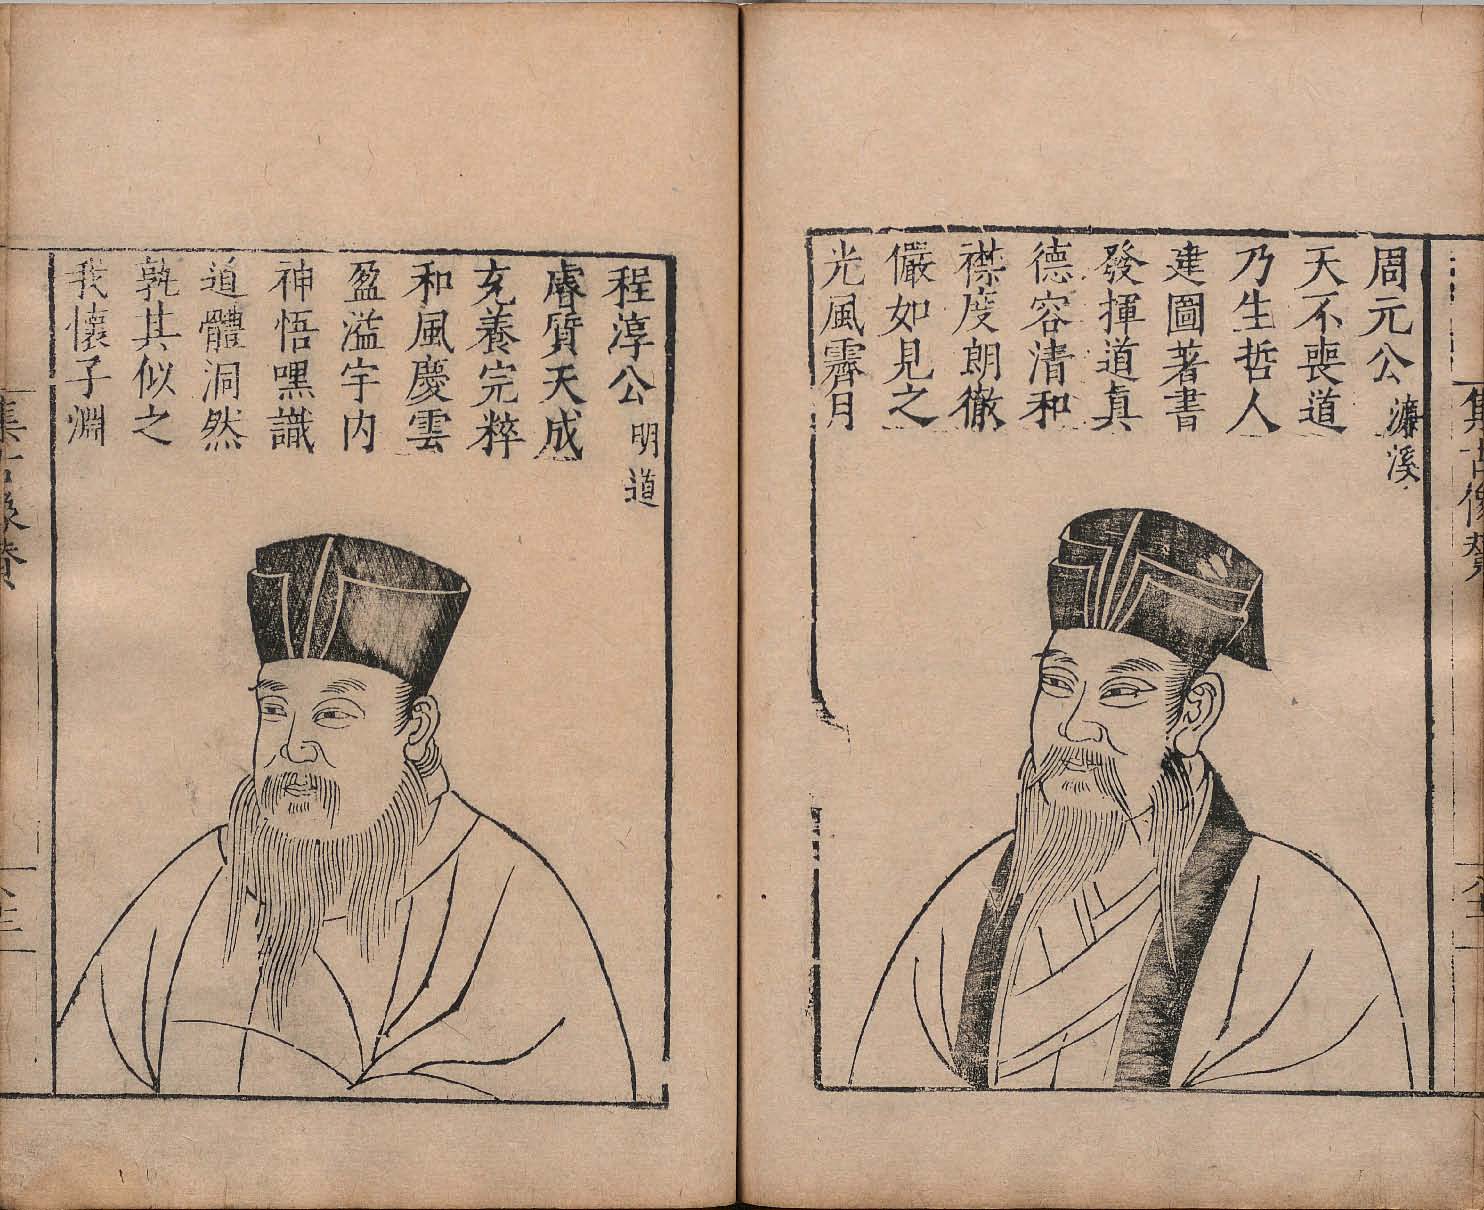 周元公 濂溪
天不喪道
乃生哲人
建圖著書
發揮道真
德容清和
襟度朗徹
儼如見之
光風霽月
程淳公 明道
睿質天成
充養完粹
和風慶雲
盈溢宇内
神悟嘿識
道體洞然
孰其似之
我懷子淵
集古像贊